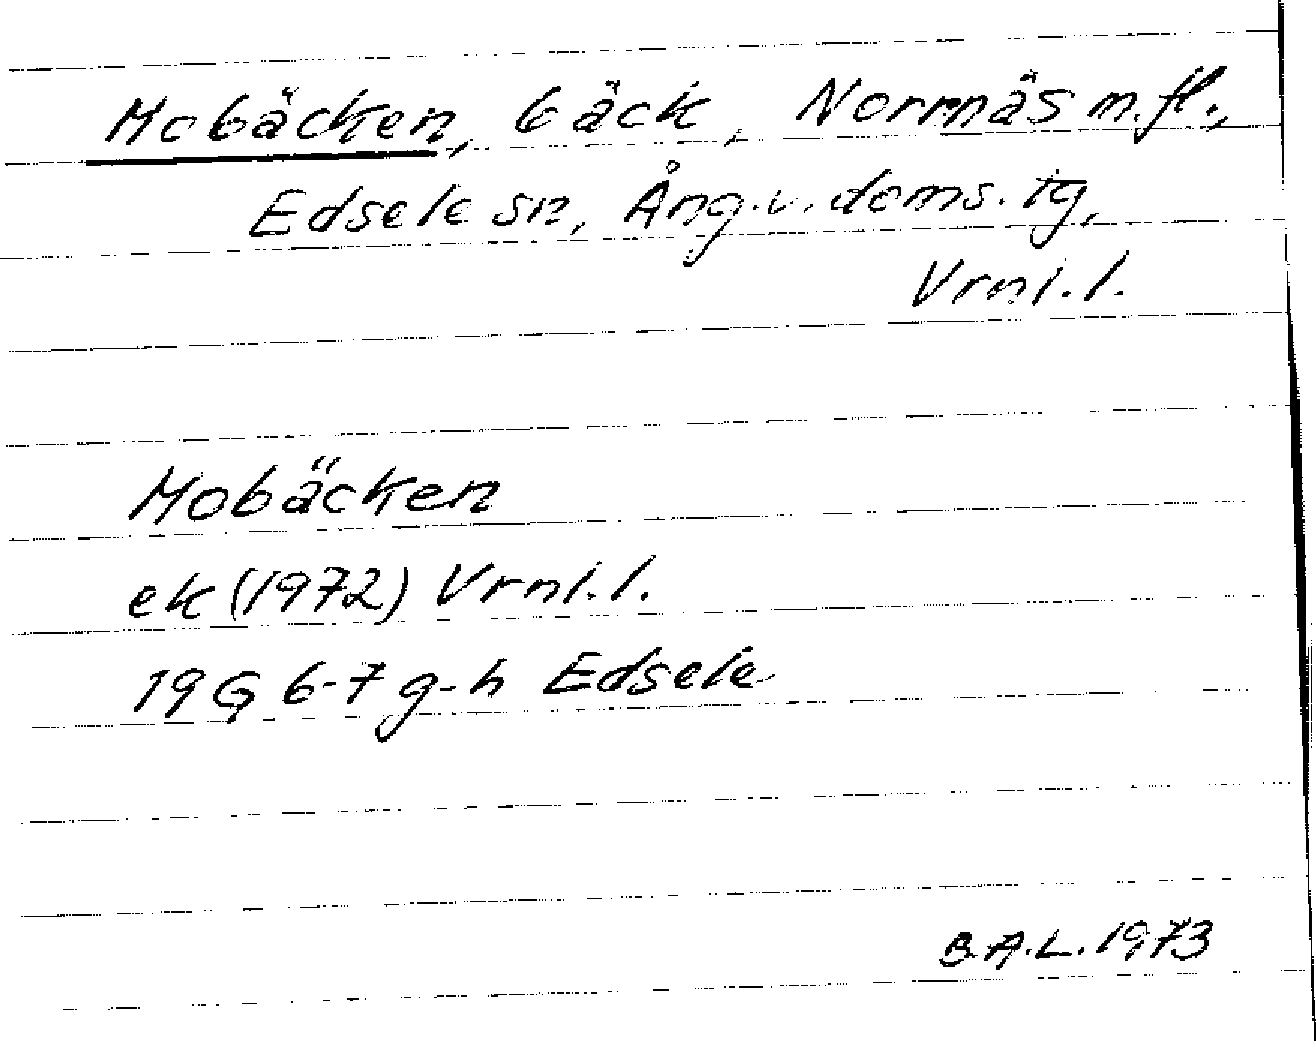 Mobäcken, bäck, Norrnäs m.fl.,
Edsele sn, Ång.v.doms.tg,
Vrnl.l.
Mobäcken
ek (1972) Vrnl.l.
19G 6-7 g-h Edsele
B.A.L. 1973